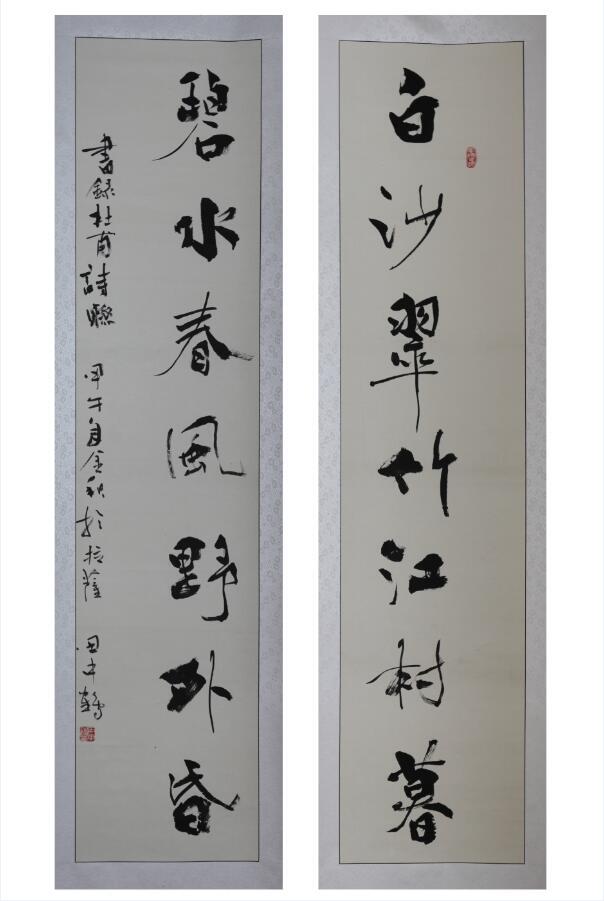 白沙翠竹江村暮
碧水春風野外昏
書録杜甫詩聯 甲午金秋於拉薩 田中鶴